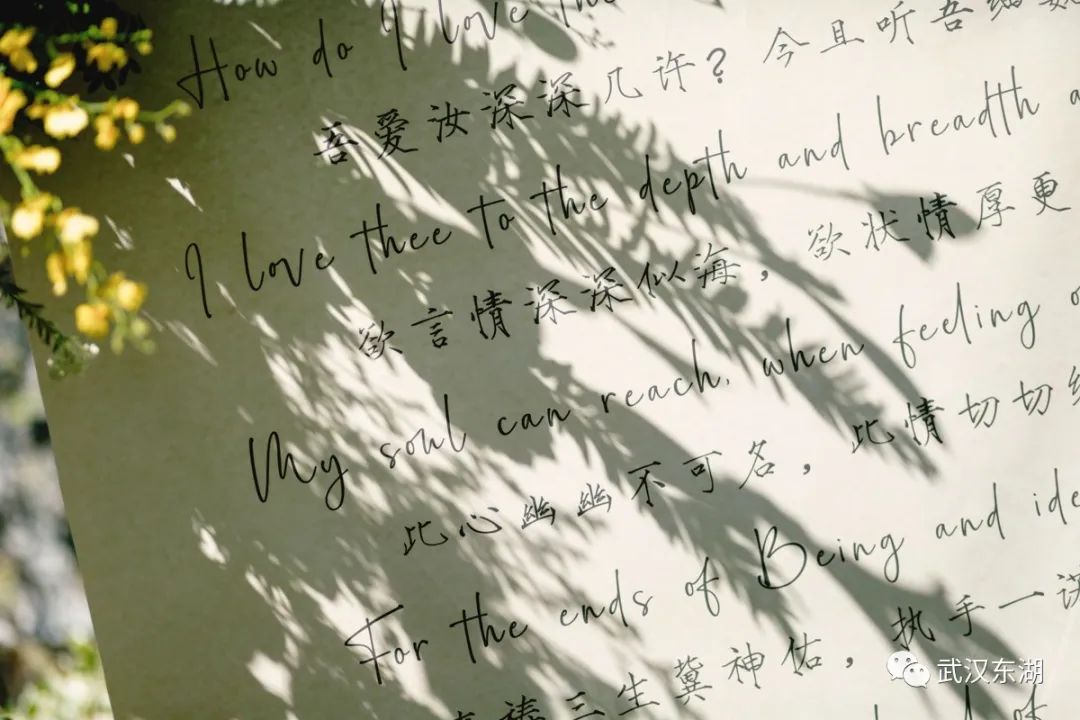 How do I love
吾爱汝深深几许？今且听吾细
I love thee to the depth and breadth
欲言情深深似海，欲状情厚更
My soul can reach, when feeling
此心幽幽不可名，此情切切
For the ends of Being and ide
祷三生冀神佑，执手一
of
武汉东湖